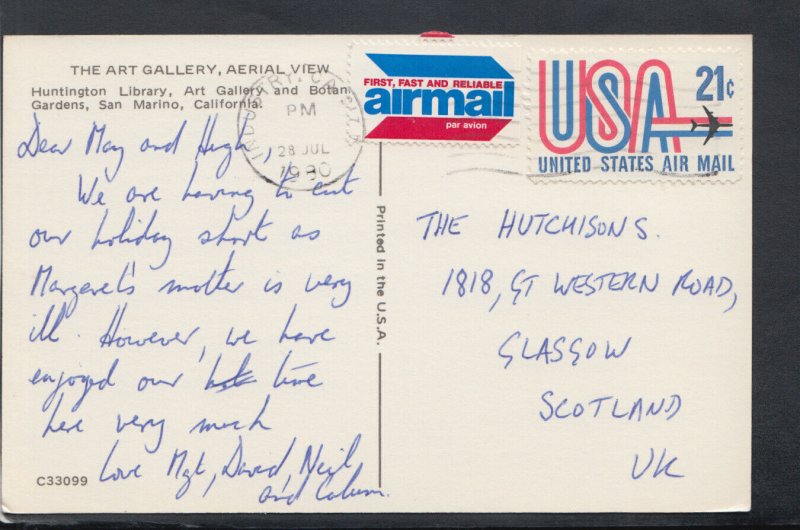 THE ART GALLERY, AERIAL VIEW
Huntington Library, Art Gallery and Botan
Gardens, San Marino, California.
Dear May and Hugh,
We are having to cut
our holiday short as
Margaret's mother is very
ill. However, we have
enjoyed our time
here very much
Love Mgt, David, Neil
and Calum.
C33099
Printed in the U.S.A.
INDUSTRY, CA
PM
28 JUL
1980
FIRST, FAST AND RELIABLE
airmail
par avion
USA 21¢
UNITED STATES AIR MAIL
THE HUTCHISONS.
1818, GT WESTERN ROAD,
GLASGOW
SCOTLAND
UK